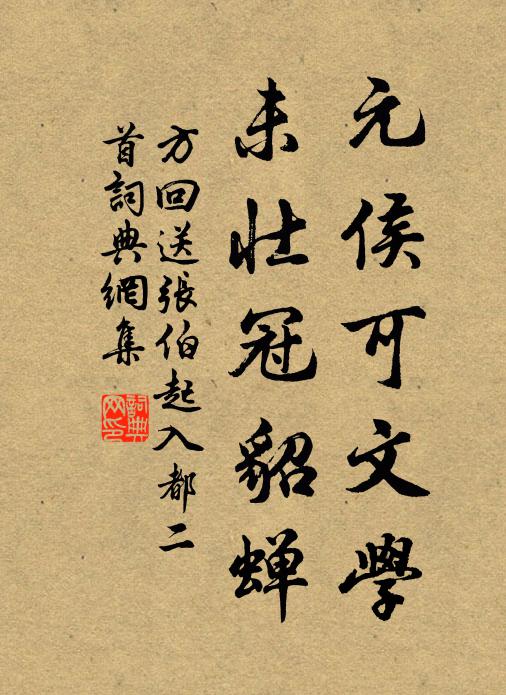 元侯可文學
未壯冠貂蟬
方回送張伯起入都二
首詞典網集
詞典
网印